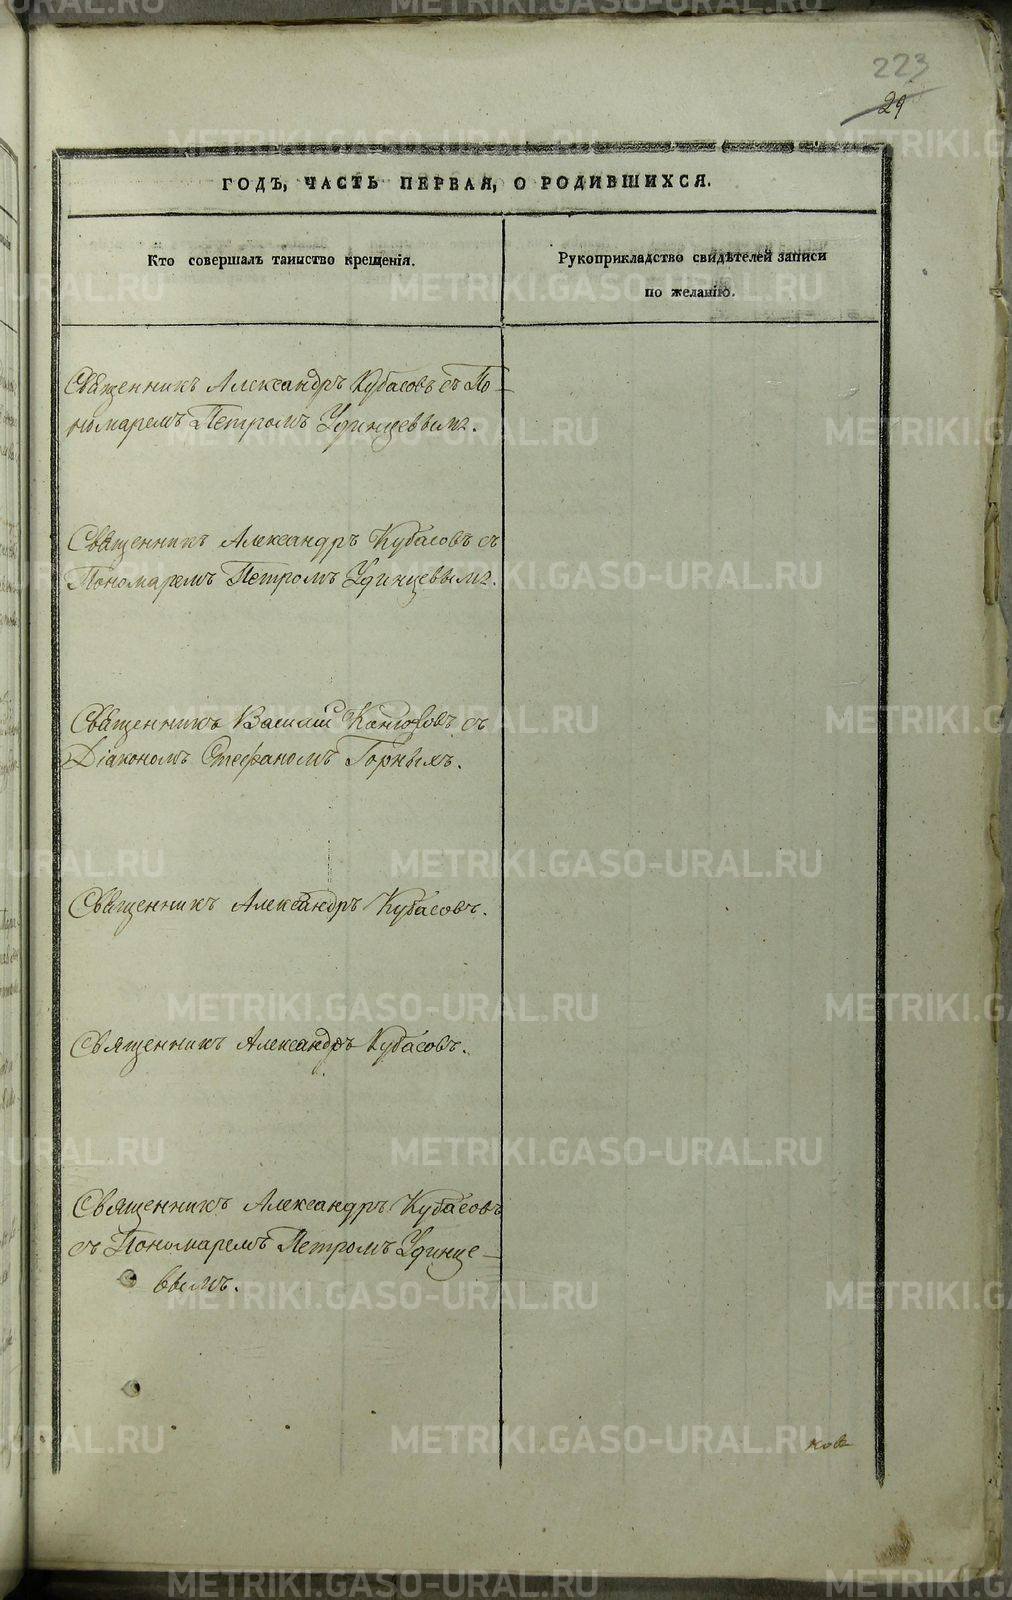 223
29
ГОДЪ, ЧАСТЬ ПЕРВАЯ, О РОДИВШИХСЯ.
Кто совершалъ таинство крещенія.
Рукоприкладство свидѣтелей записи
по желанію.
Священникъ Александръ Кубасовъ съ По-
номаремъ Петромъ Удинцевымъ.
Священникъ Александръ Кубасовъ съ
Пономаремъ Петромъ Удинцевымъ.
Священникъ Василій съ
Діакономъ Стефаномъ Горныхъ.
Священникъ Александръ Кубасовъ.
Священникъ Александръ Кубасовъ.
Священникъ Александръ Кубасовъ
съ Пономаремъ Петромъ Удинце-
вымъ.
METRIKI.GASO-URAL.RU